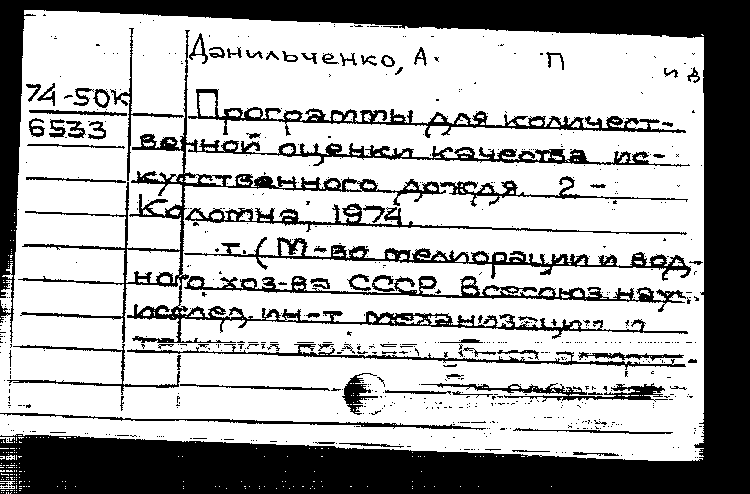 Данильченко, А. П
и в
74-50к
6533
Программы для количест-
венной оценки качества ис-
кусственного дождя. 2 -
Коломна, 1974.
т. (М-во мелиорации и вод-
ного хоз-ва СССР. Всесоюз науч.-
исслед. ин-т механизации и
техники полива. Б-ка алгорит-